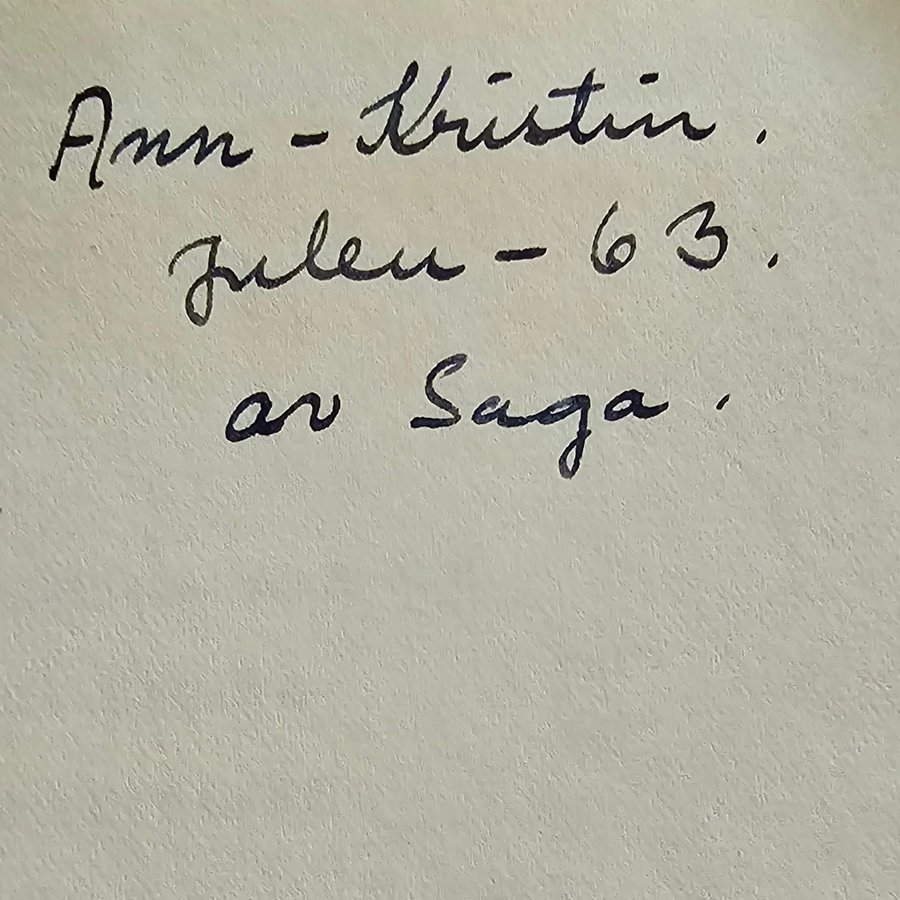 Ann - Kristin.
Julen - 63.
av Saga.